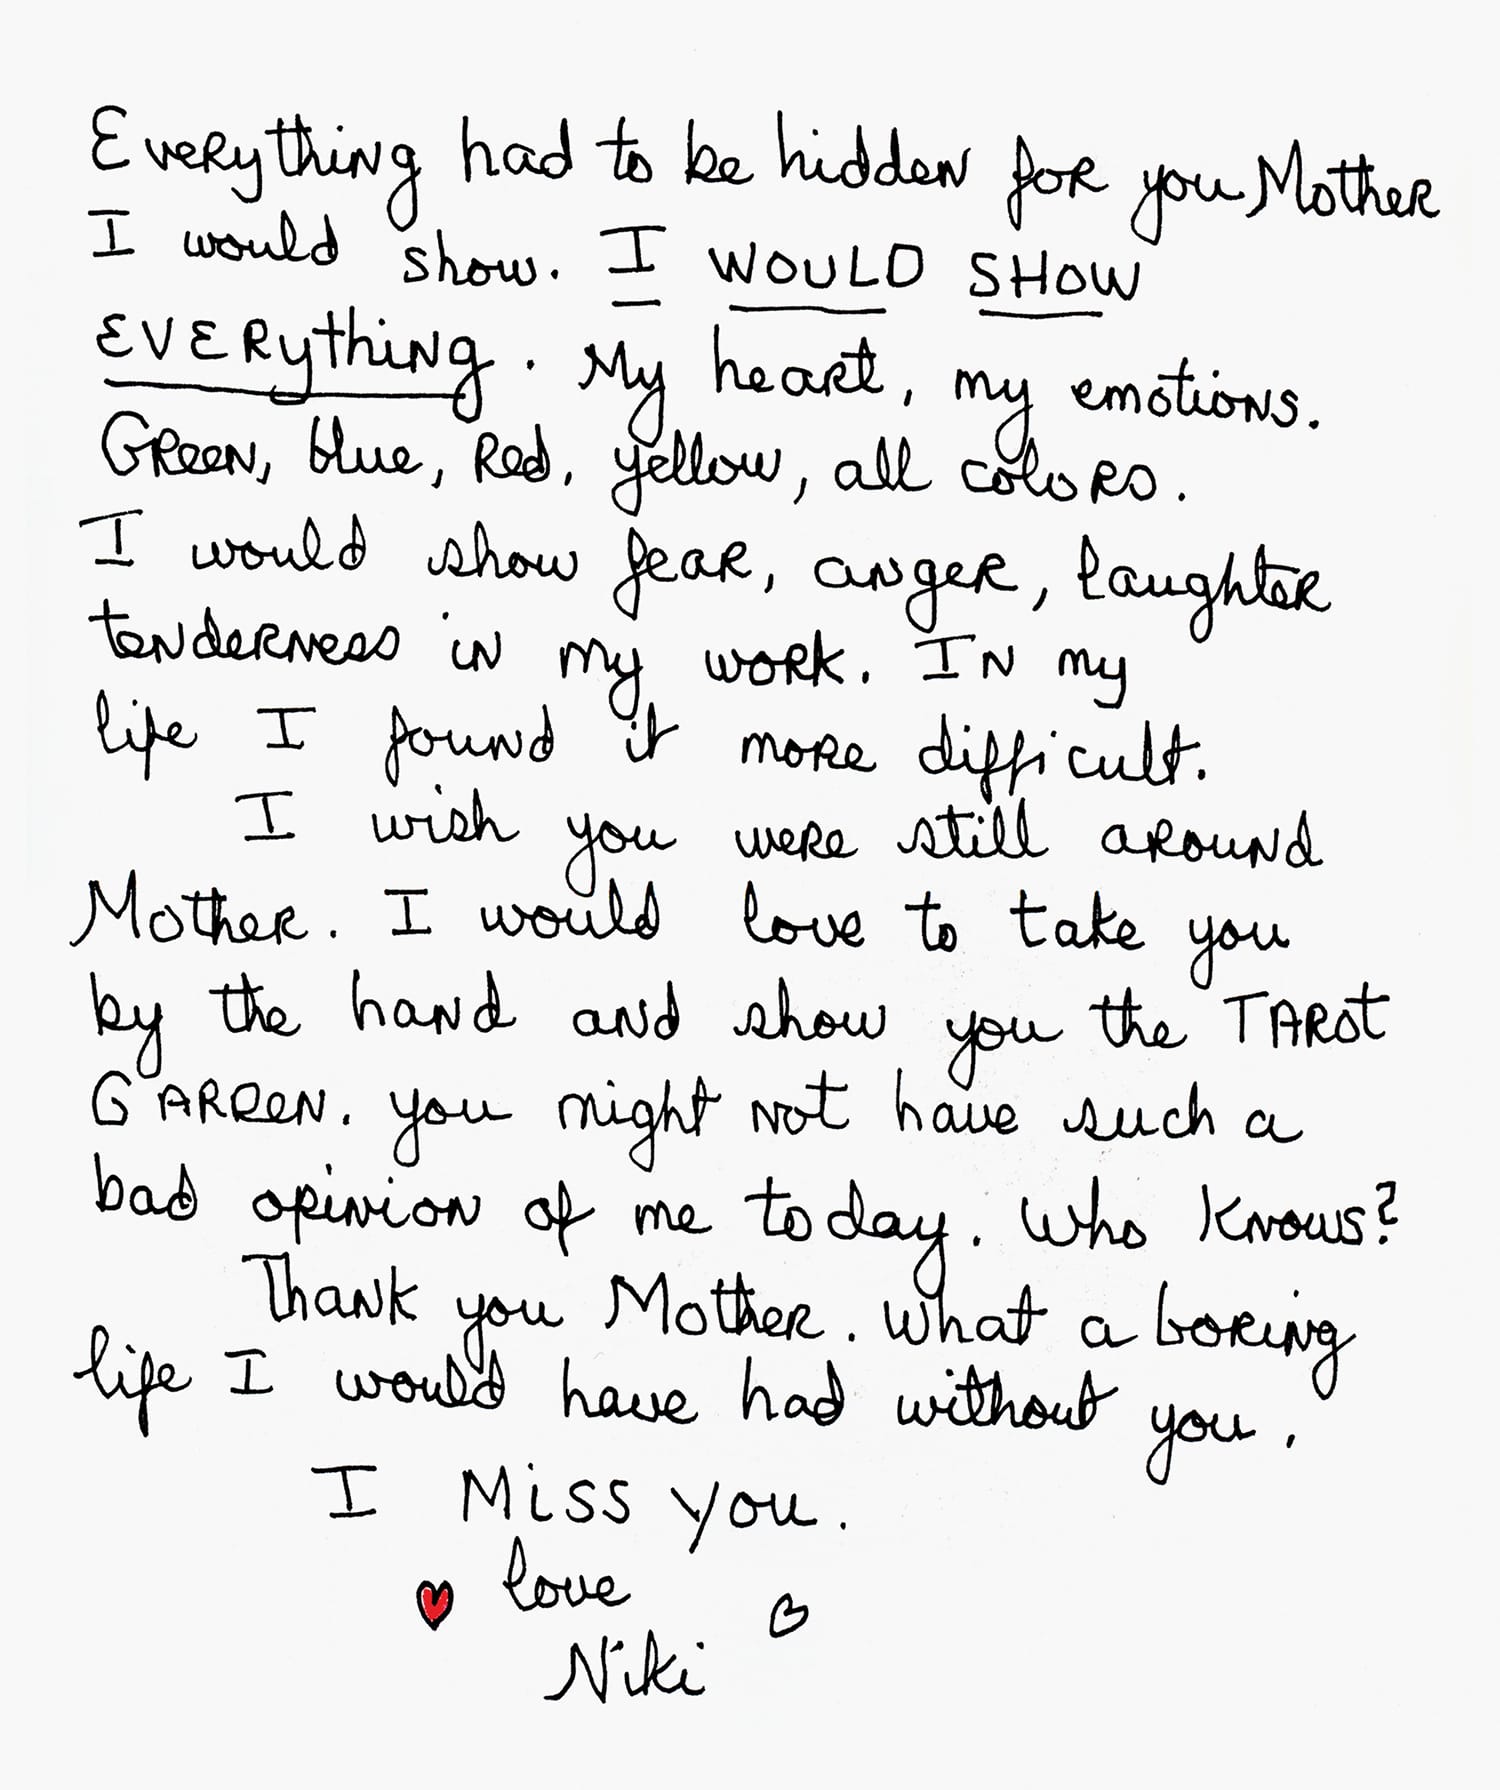 Everything had to be hidden for you Mother
I would show. I WOULD SHOW
EVERything. My heart, my emotions.
Green, blue, Red, yellow, all colors.
I would show fear, anger, laughter
tenderness in my work. In my
life I found it more difficult.
I wish you were still around
Mother. I would love to take you
by the hand and show you the TAROt
GARDEN. you might not have such a
bad opinion of me today. Who knows?
Thank you Mother. What a boring
life I would have had without you.
I Miss you.
love
Niki